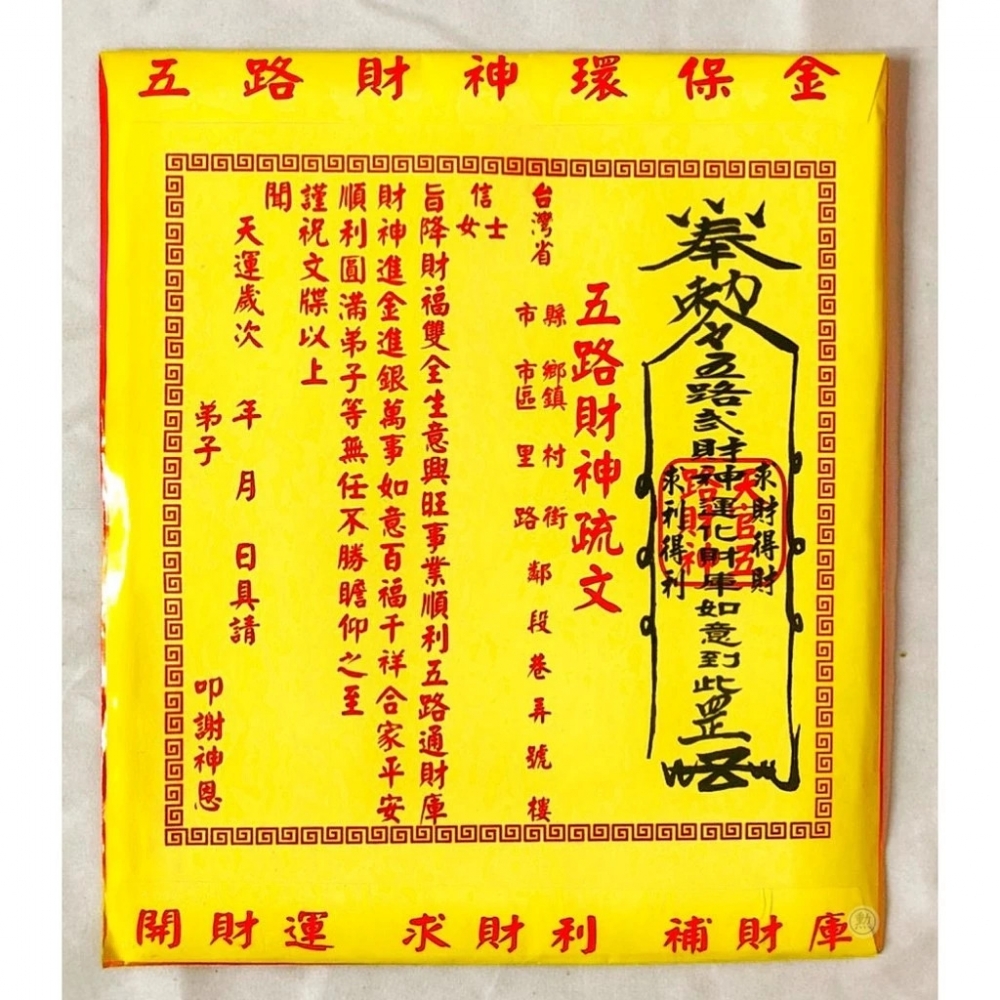 五路財神環保金
奉勅令五路武財神運化財庫如意到此罡
求財得財
求利得利
天官五
路財神
五路財神疏文
台灣省
縣 鄉鎮 村 街
市 市區 里 路 鄰 段 巷 弄 號 樓
信士
女
旨降財福雙全生意興旺事業順利五路通財庫
財神進金進銀萬事如意百福千祥合家平安
順利圓滿弟子等無任不勝瞻仰之至
謹祝文牒以上
聞
天運歲次 年 月 日具請
弟子 叩謝神恩
開財運 求財利 補財庫